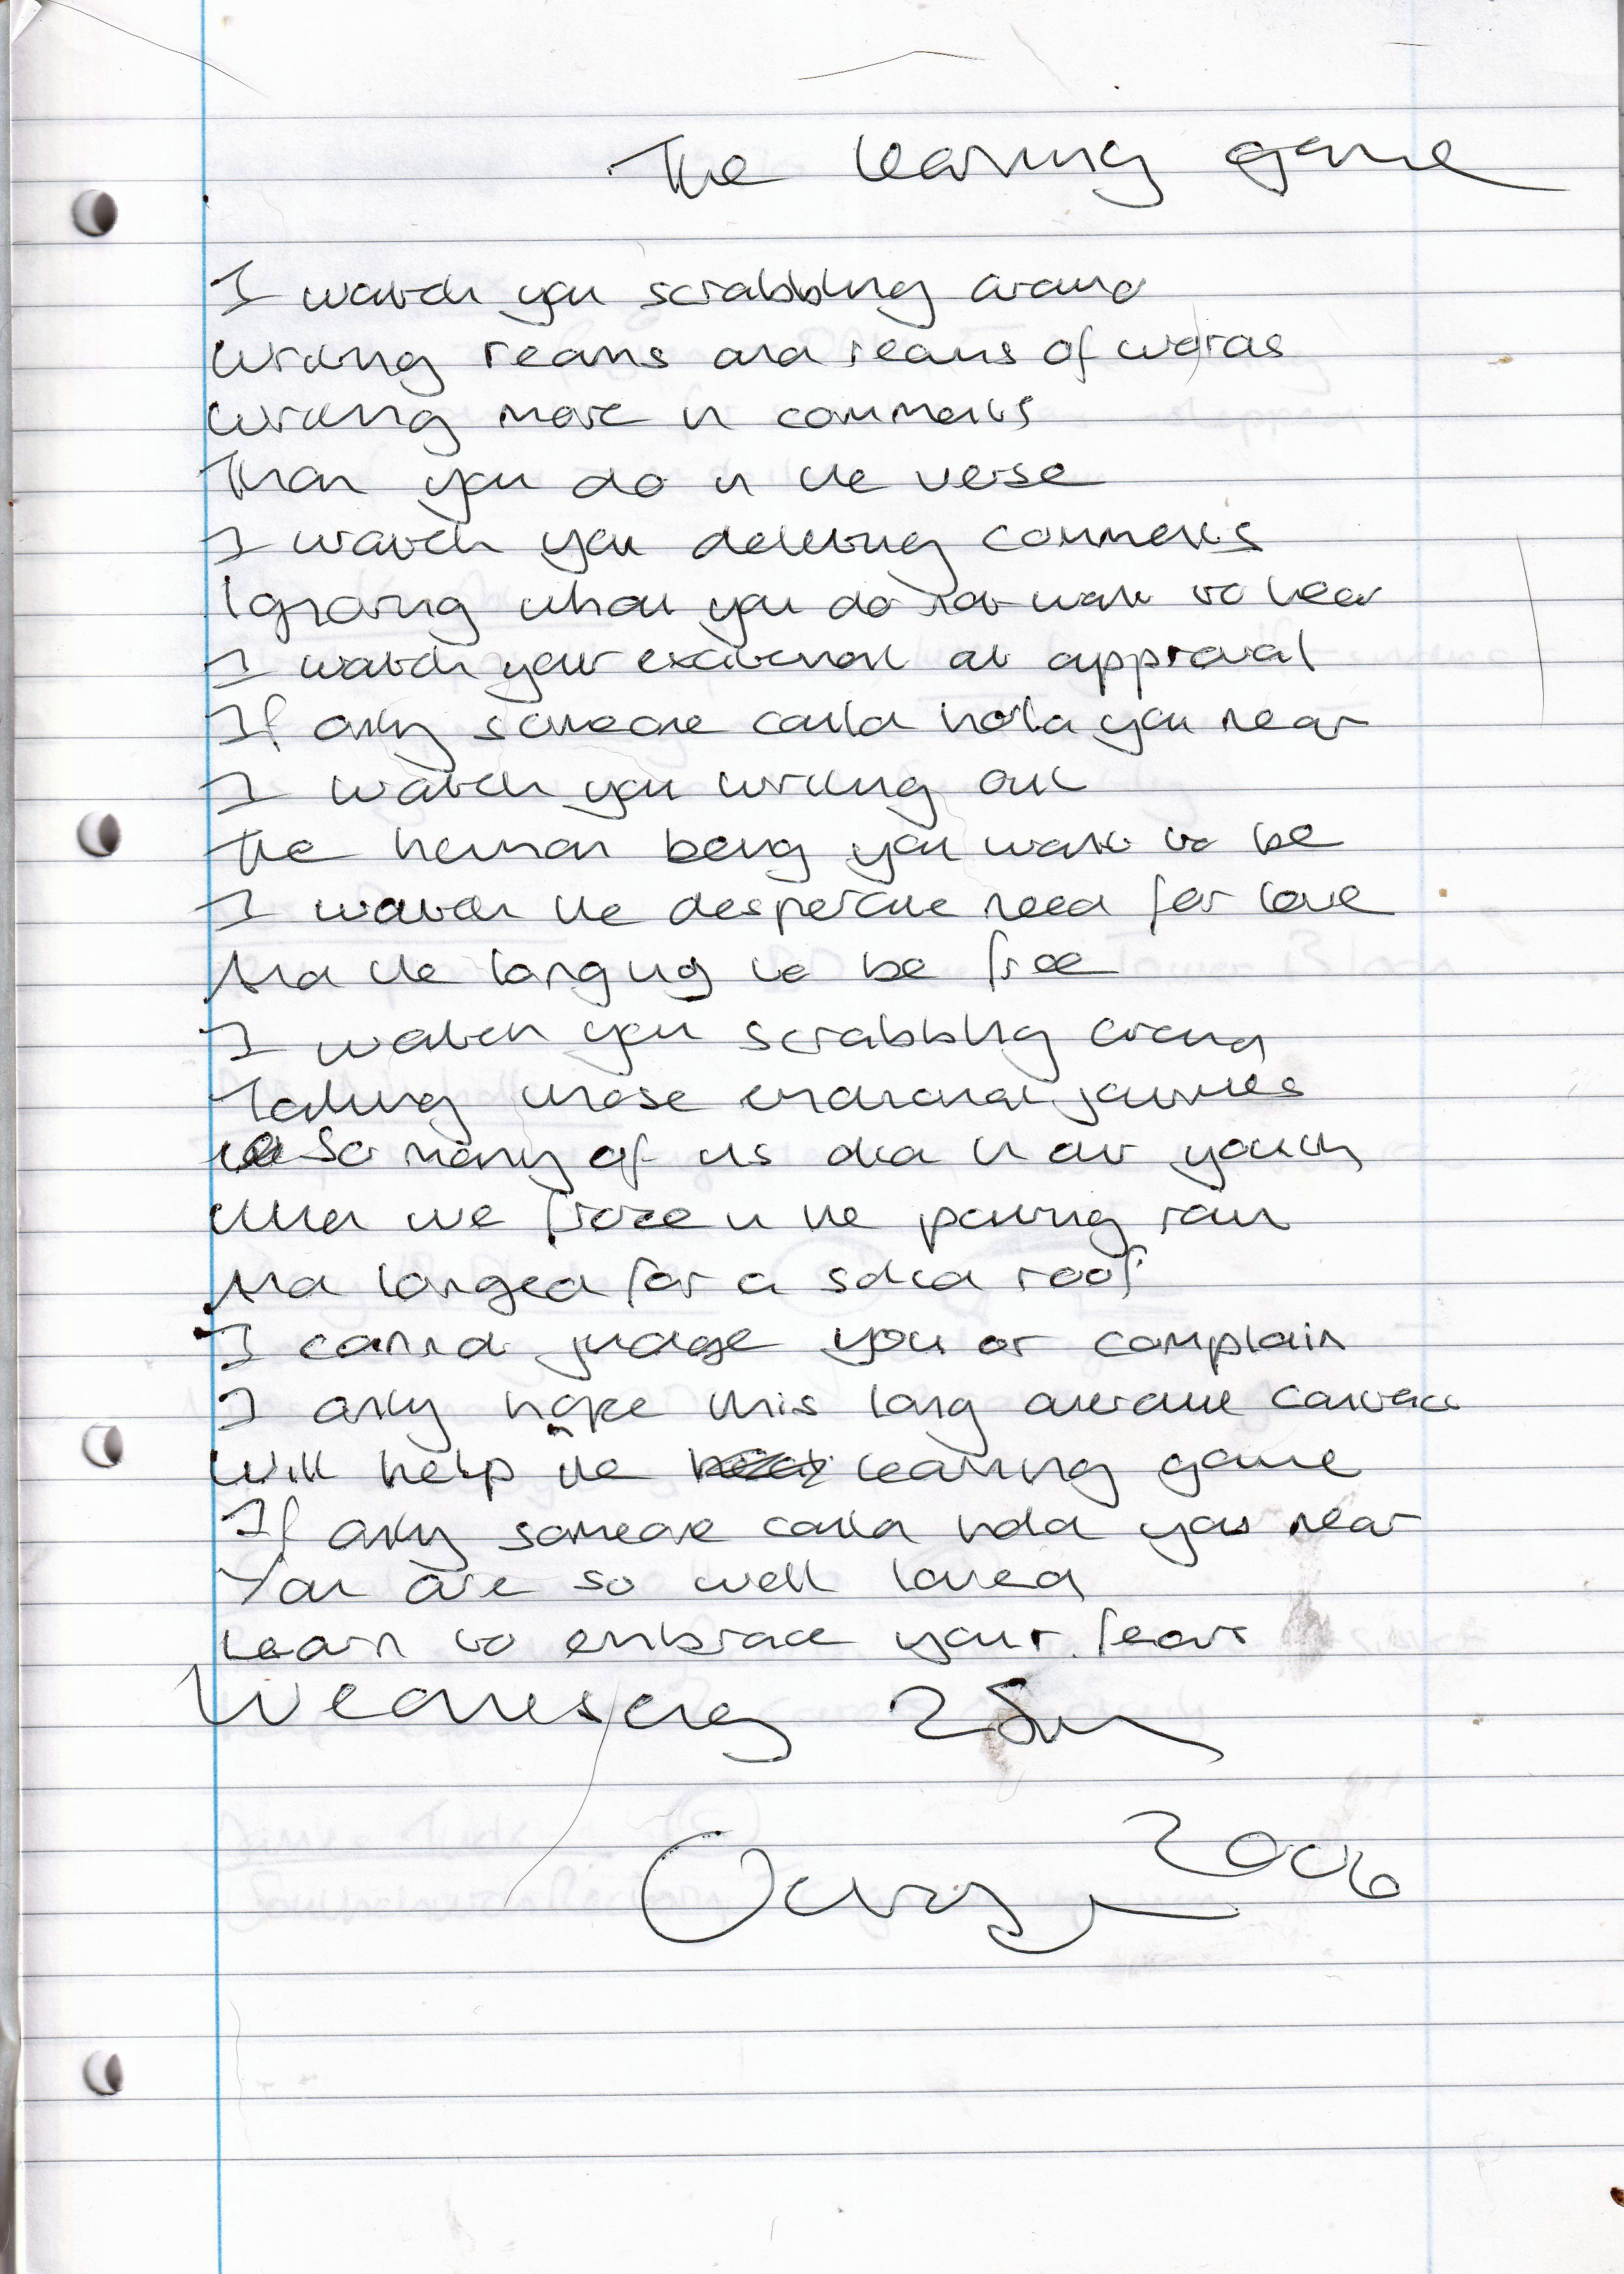 The learning game
I watch you scrabbling around
Writing reams and reams of words
Writing more in comments
Than you do in the verse
I watch you deleting comments
Ignoring what you do not want to hear
I watch your excitement at approval
If only someone could hold you near
I watch you writing out
The human being you want to be
I watch the desperate need for love
And the longing to be free
I watch you scrabbling around
Taking those emotional journies
So many of us did in our youth
When we froze in the pouring rain
And longed for a solid roof
I cannot judge you or complain
I only hope this long distance contact
Will help the learning game
If only someone could hold you near
You are so well loved
Learn to embrace your fears
Wednesday 25th
2006